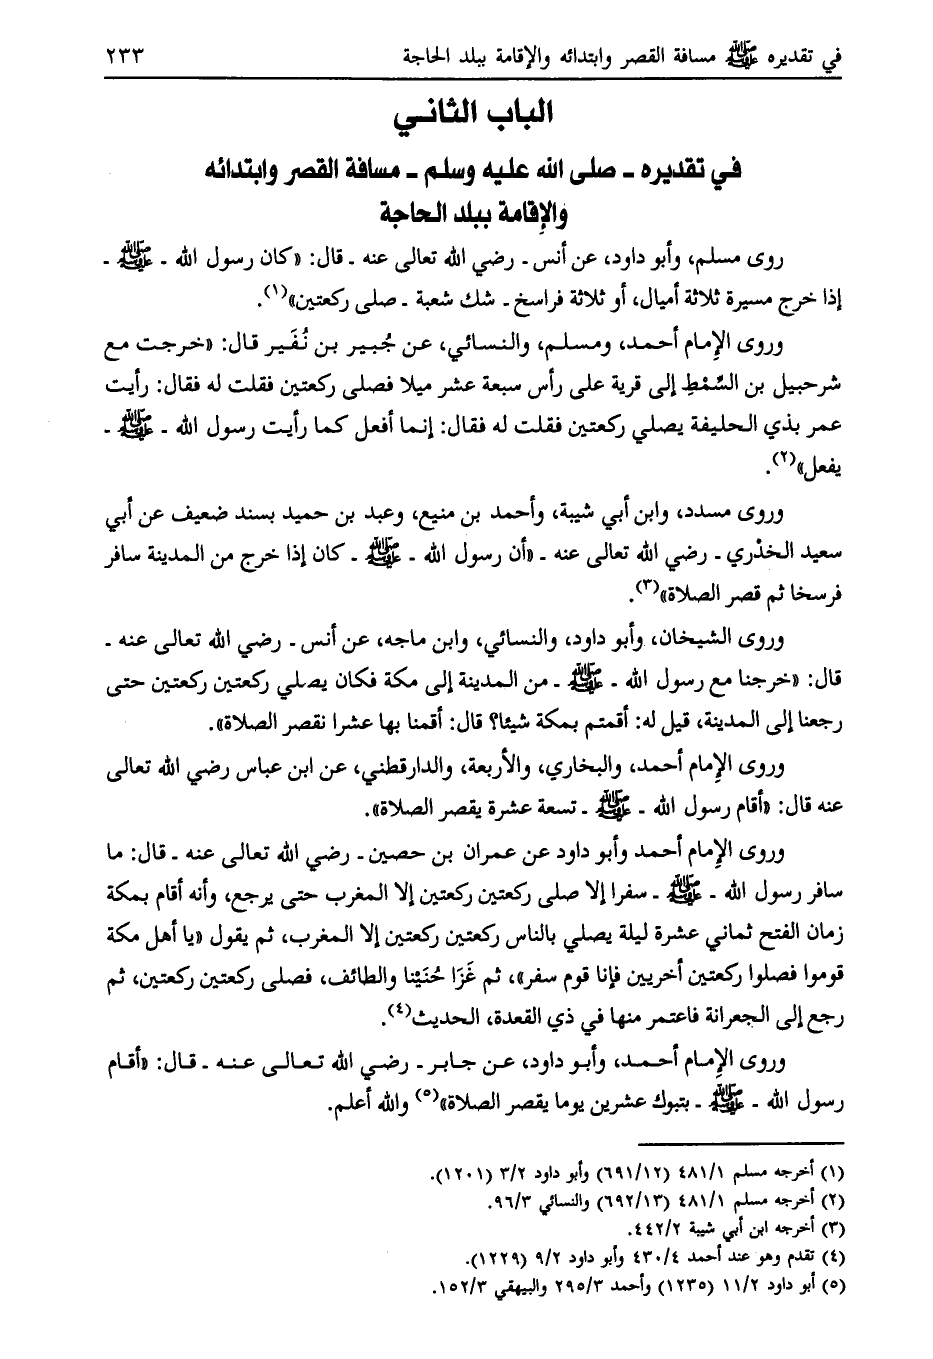 في تقديره ﷺ مسافة القصر وابتدائه والإقامة ببلد الحاجة ٢٣٣
الباب الثاني
في تقديره ـ صلى الله عليه وسلم ـ مسافة القصر وابتدائه
والإقامة ببلد الحاجة
روى مسلم، وأبو داود، عن أنس ـ رضي الله تعالى عنه ـ قال: «كان رسول الله ـ ﷺ ـ
إذا خرج مسيرة ثلاثة أميال، أو ثلاثة فراسخ ـ شك شعبة ـ صلى ركعتين»(١).
وروى الإمام أحمد، ومسلم، والنسائي، عن جُبير بن نُفَير قال: «خرجت مع
شرحبيل بن السِّمْطِ إلى قرية على رأس سبعة عشر ميلا فصلى ركعتين فقلت له فقال: رأيت
عمر بذي الحليفة يصلي ركعتين فقلت له فقال: إنما أفعل كما رأيت رسول الله ـ ﷺ ـ
يفعل»(٢).
وروى مسدد، وابن أبي شيبة، وأحمد بن منيع، وعبد بن حميد بسند ضعيف عن أبي
سعيد الخذْري ـ رضي الله تعالى عنه ـ «أن رسول الله ـ ﷺ ـ كان إذا خرج من المدينة سافر
فرسخا ثم قصر الصلاة»(٣).
وروى الشيخان، وأبو داود، والنسائي، وابن ماجه، عن أنس ـ رضي الله تعالى عنه ـ
قال: «خرجنا مع رسول الله ـ ﷺ ـ من المدينة إلى مكة فكان يصلي ركعتين ركعتين حتى
رجعنا إلى المدينة، قيل له: أقمتم بمكة شيئا؟ قال: أقمنا بها عشرا نقصر الصلاة».
وروى الإمام أحمد، والبخاري، والأربعة، والدارقطني، عن ابن عباس رضي الله تعالى
عنه قال: «أقام رسول الله ـ ﷺ ـ تسعة عشرة يقصر الصلاة».
وروى الإمام أحمد وأبو داود عن عمران بن حصين ـ رضي الله تعالى عنه ـ قال: ما
سافر رسول الله ـ ﷺ ـ سفرا إلا صلى ركعتين ركعتين إلا المغرب حتى يرجع، وأنه أقام بمكة
زمان الفتح ثماني عشرة ليلة يصلي بالناس ركعتين ركعتين إلا المغرب، ثم يقول «يا أهل مكة
قوموا فصلوا ركعتين أخريين فإنا قوم سفر»، ثم غَزَا حُنَيْنا والطائف، فصلى ركعتين ركعتين، ثم
رجع إلى الجعرانة فاعتمر منها في ذي القعدة، الحديث(٤).
وروى الإمام أحمد، وأبو داود، عن جابر ـ رضي الله تعالى عنه ـ قال: «أقام
رسول الله ـ ﷺ ـ بتبوك عشرين يوما يقصر الصلاة»(٥) والله أعلم.
(١) أخرجه مسلم ٤٨١/١ (٦٩١/١٢) وأبو داود ٣/٢ (١٢٠١).
(٢) أخرجه مسلم ٤٨١/١ (٦٩٢/١٣) والنسائي ٩٦/٣.
(٣) أخرجه ابن أبي شيبة ٤٤٢/٢.
(٤) تقدم وهو عند أحمد ٤٣٠/٤ وأبو داود ٩/٢ (١٢٢٩).
(٥) أبو داود ١١/٢ (١٢٣٥) وأحمد ٢٩٥/٣ والبيهقي ١٥٢/٣.